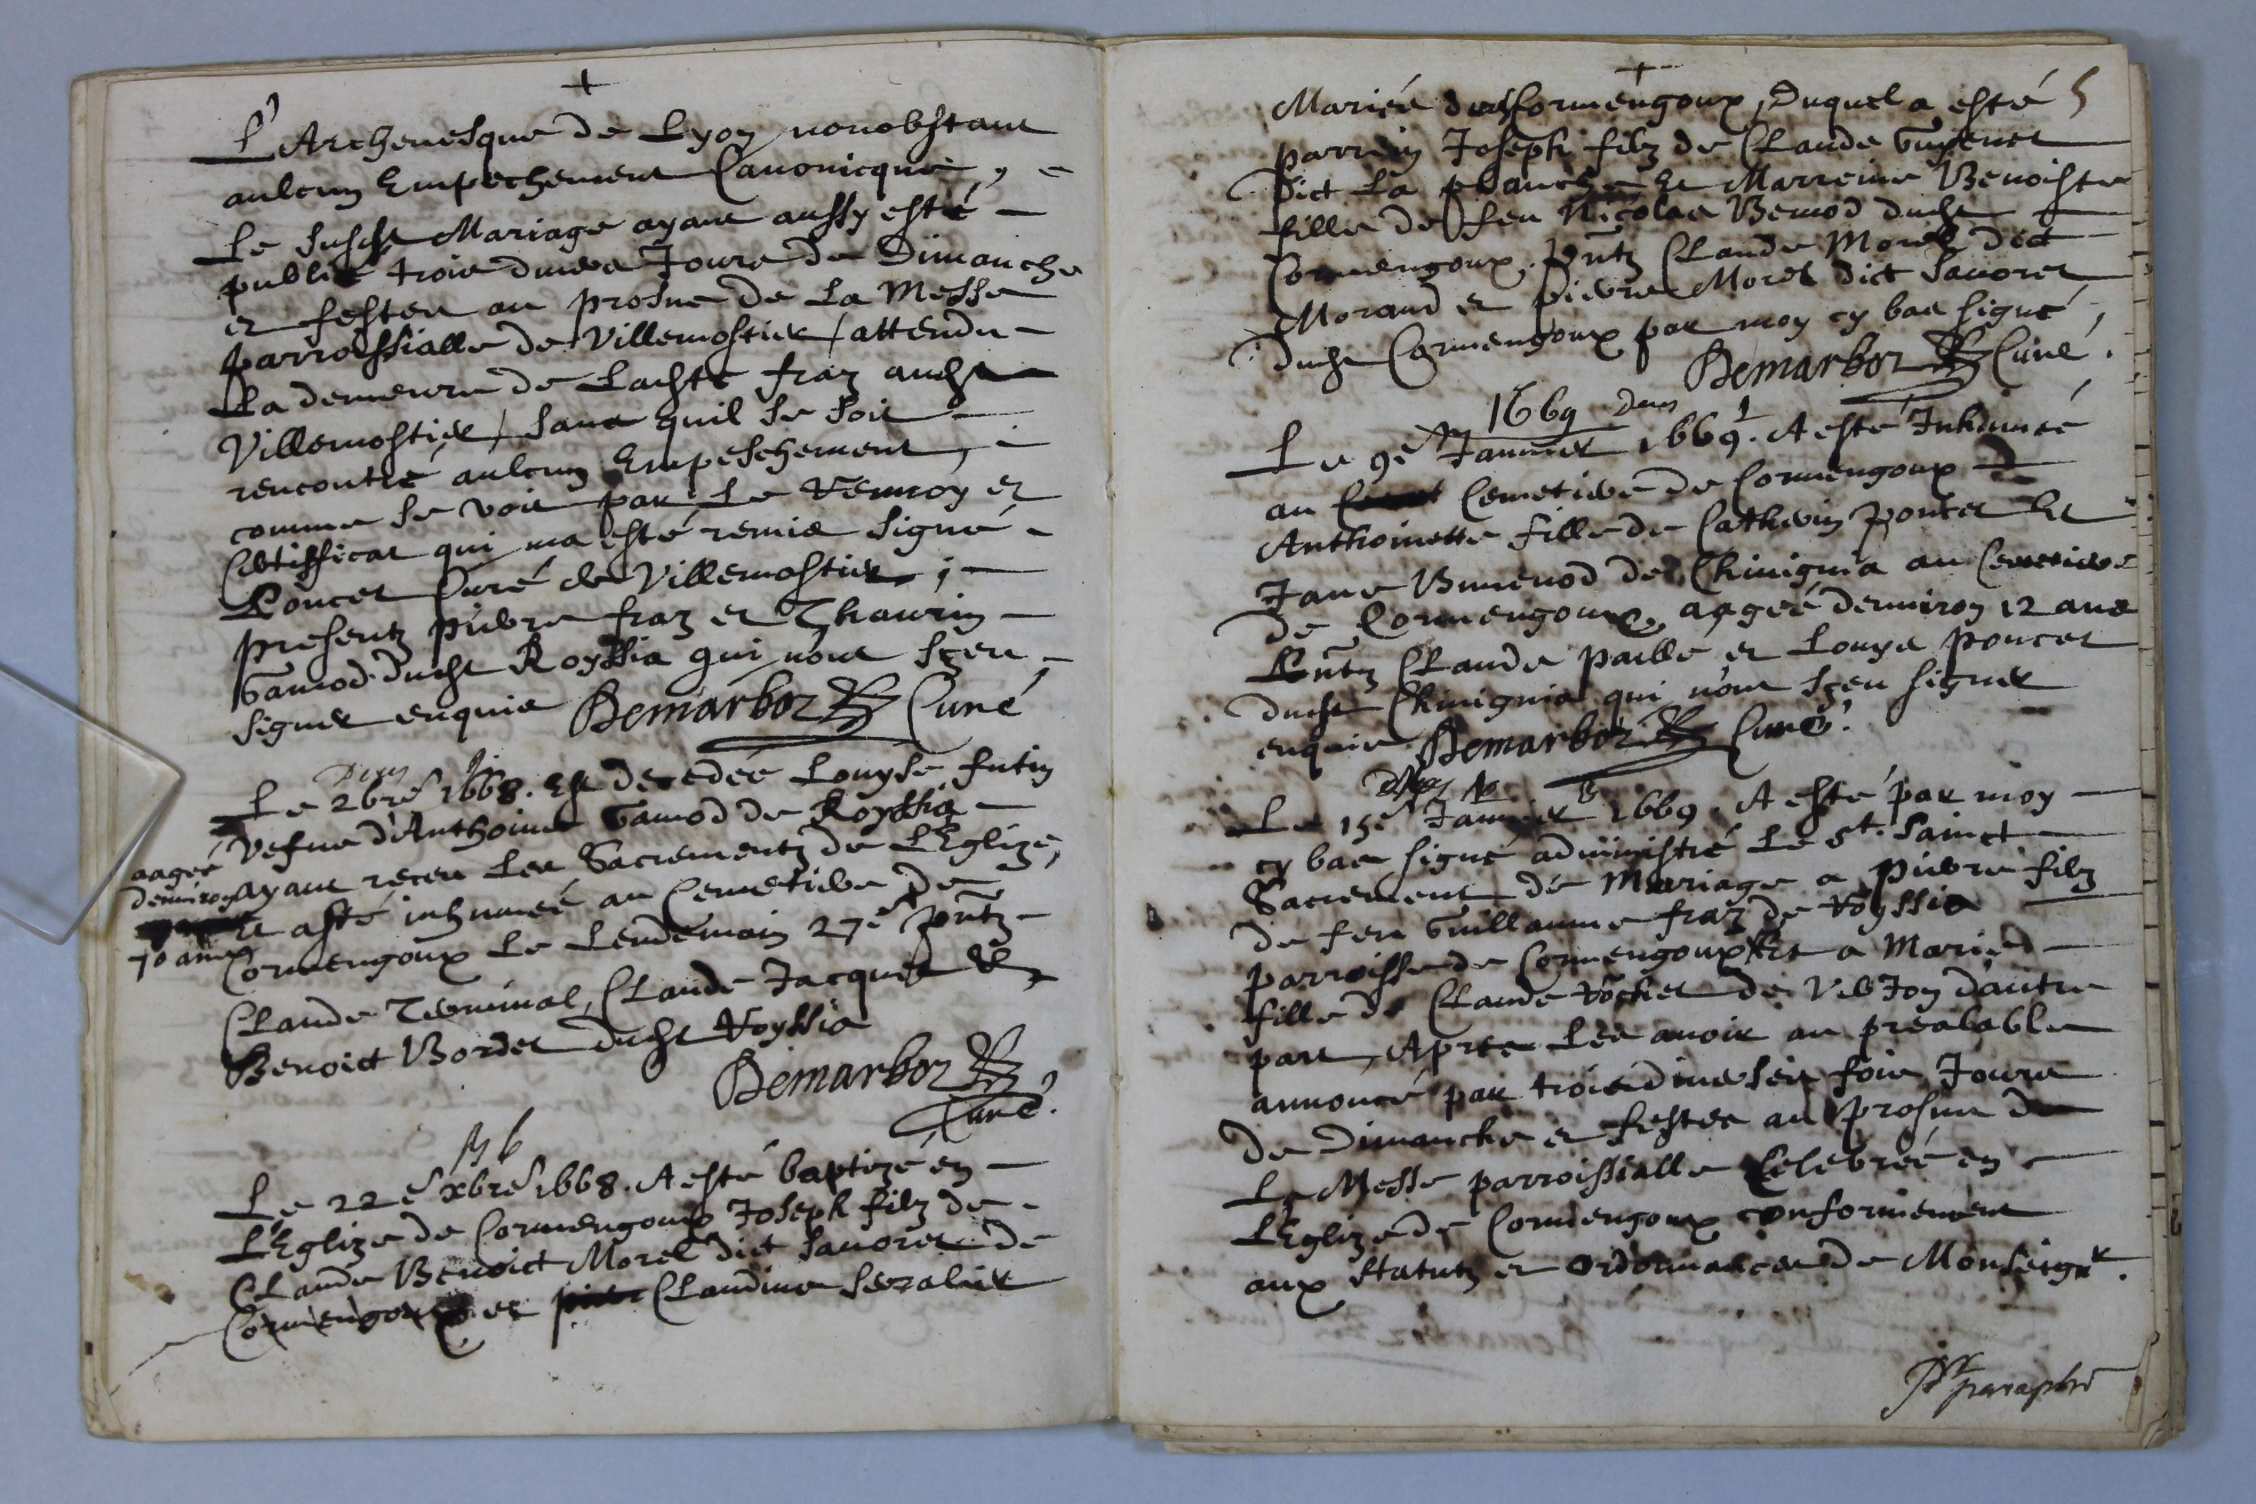 +
L'Archevesque de Lyon nonobstant
aulcung Empechement Canonicque,
Le susdt Mariage ayant aussy esté
publié trois divers Jours de Dimanche
et festes au prosne de la Messe
parroissialle de Villemostier attendu
La demeure de Ladite fraz audt
Villemostier, sans quil se soit
rencontré aulcung Empeschement,
comme se voit par le renvoy et
Certifficat qui ma esté remis signé
Poncet Curé de Villemostier;
presentz pierre fraz et Thaurin
Gamod dudt Royssia qui n'ont sçeu
signer enquis Demarboz Curé
Deux
Le 26re 1668. Est decedée Louyse futin
Vefve d'Anthoine Gamod de Royssia
aagée
denviron
70 ans
ayant reçeu les Sacrementz de L'Eglize,
et a esté inhumée au Cemetiere de
Cormengoux Le Lendemain 27e pntz
Claude Terminal, Claude Jacquet &
Benoict Bordet dudt Royssia
Demarboz
Curé.
B 6
Le 22e xbre 1668. A esté baptizé en
L'Eglize de Cormengoux Joseph filz de
Claude Benoict Morel dict Savoret de
Cormengoux et Claudine
+
5
Mariés de Cormengoux, Duquel a esté
parrein Joseph filz de Claude Guyenet
dict La planche Et Marreine Benoiste
fille de feu Nicolas Bemod dudt
Cormengoux. pntz Claude Morel dict
Morand et pierre Morel dict Savoret
dudt Cormengoux par moy cy bas signé,
Demarboz Curé.
1669
Deux 1
Le 9e Janvier 1669. A esté Inhumée
au Cemetiere de Cormengoux
Anthoinette fille de Catherin poncet Et
Jane Bunenod de Chinigna au Cemetiere
de Cormengoux, aagée denviron 12 ans
pntz Claude paillé et Louys poncet
dudt Chinignia qui n'ont sçeu signer
enquis Demarboz Curé.
Le 15e Janvier 1669. A esté par moy
cy bas signé administré Le St. Sainct
Sacrement de Mariage a pierre filz
de feu Guillaume fraz de Royssia
parroisse de Cormengoux Et a Marie
fille de Claude Rochet de Verjon d'autre
part, Apres Les avoir au prealable
annoncé par trois diverses fois Jours
de Dimanche et festes au prosne de
La Messe parroissialle Celebrée en
L'Eglize de Cormengoux conformement
aux Statutz et Ordonnances de Monseigr.
paraphé